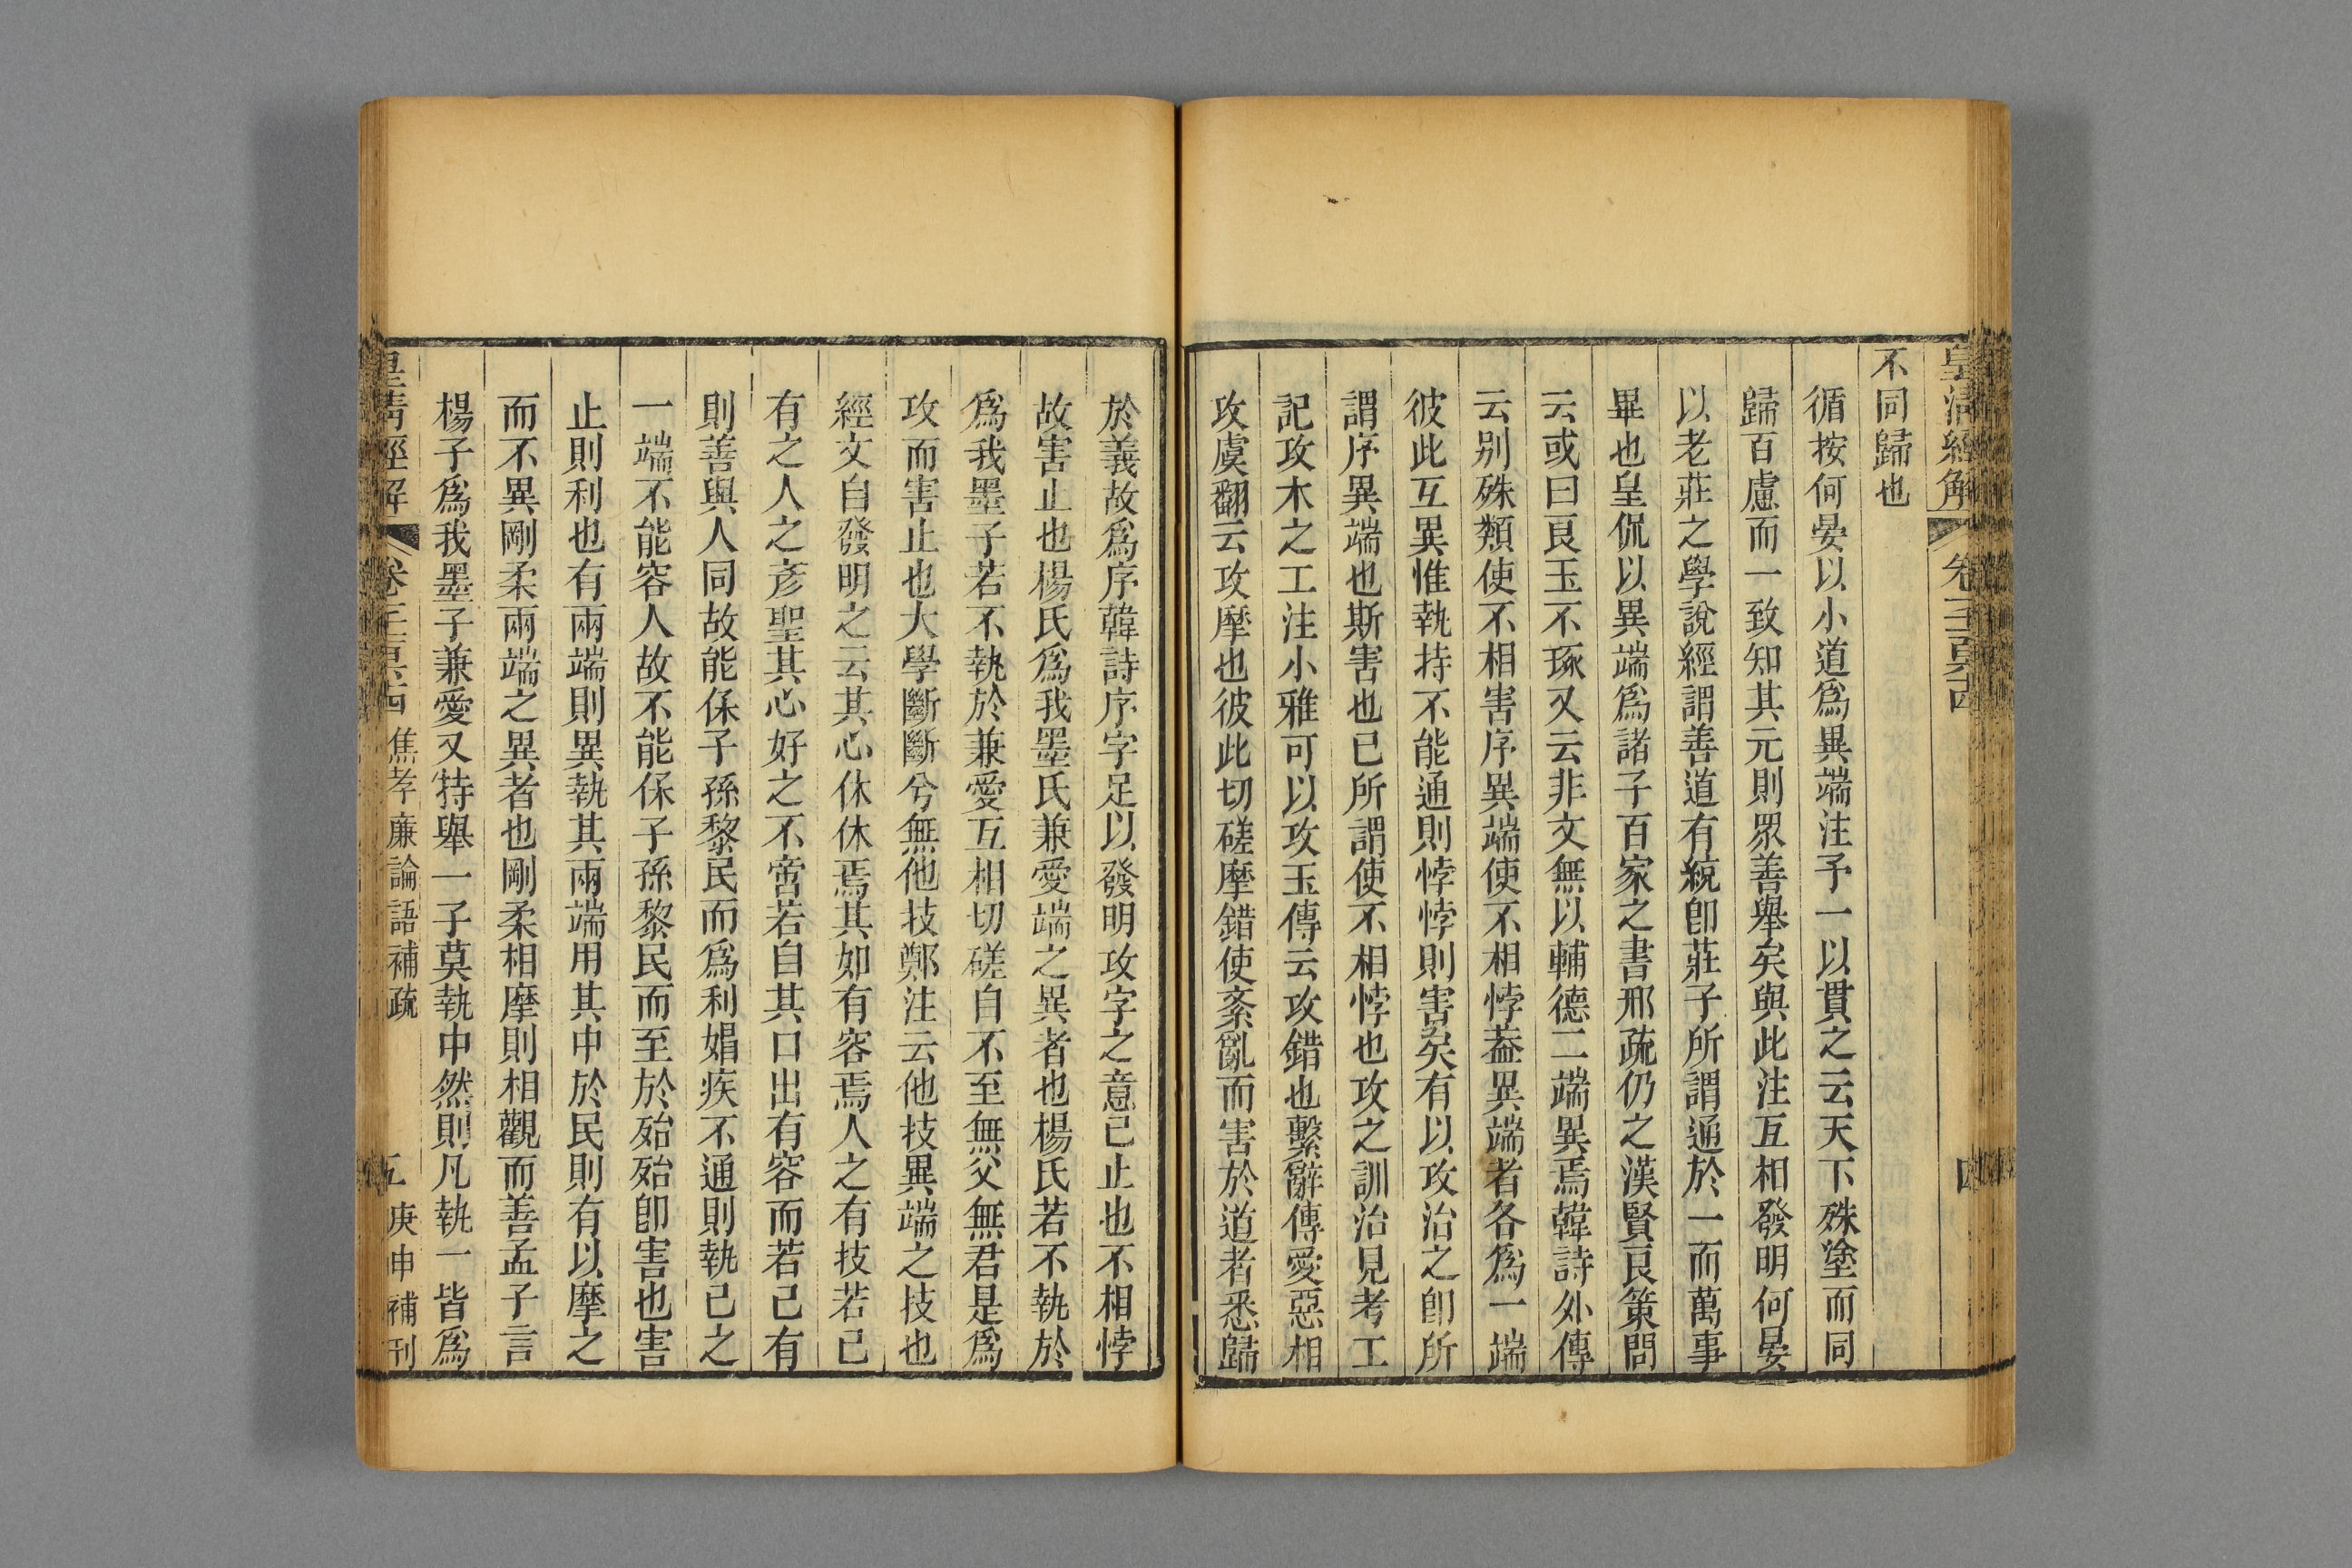 皇清經解 卷一千一百六十四 四
不同歸也
循按何晏以小道爲異端注予一以貫之云天下殊塗而同
歸百慮而一致知其元則眾善舉矣與此注互相發明何晏
以老莊之學說經謂善道有統卽莊子所謂通於一而萬事
畢也皇侃以異端爲諸子百家之書邢疏仍之漢賢良策問
云或曰良玉不琢又云非文無以輔德二端異焉韓詩外傳
云别殊類使不相害序異端使不相悖葢異端者各爲一端
彼此互異惟執持不能通則悖悖則害矣有以攻治之卽所
謂序異端也斯害也已所謂使不相悖也攻之訓治見考工
記攻木之工注小雅可以攻玉傳云攻錯也繫辭傳愛惡相
攻虞翻云攻摩也彼此切磋摩錯使紊亂而害於道者悉歸
於義故爲序韓詩序字足以發明攻字之意已止也不相悖
故害止也楊氏爲我墨氏兼愛端之異者也楊氏若不執於
爲我墨子若不執於兼愛互相切磋自不至無父無君是爲
攻而害止也大學斷斷兮無他技鄭注云他技異端之技也
經文自發明之云其心休休焉其如有容焉人之有技若己
有之人之彥聖其心好之不啻若自其口出有容而若己有
則善與人同故能保子孫黎民而爲利媢疾不通則執己之
一端不能容人故不能保子孫黎民而至於殆殆卽害也害
止則利也有兩端則異執其兩端用其中於民則有以摩之
而不異剛柔兩端之異者也剛柔相摩則相觀而善孟子言
楊子爲我墨子兼愛又特舉一子莫執中然則凡執一皆爲
皇清經解 卷 焦孝廉論語補疏 五 庚申補刊